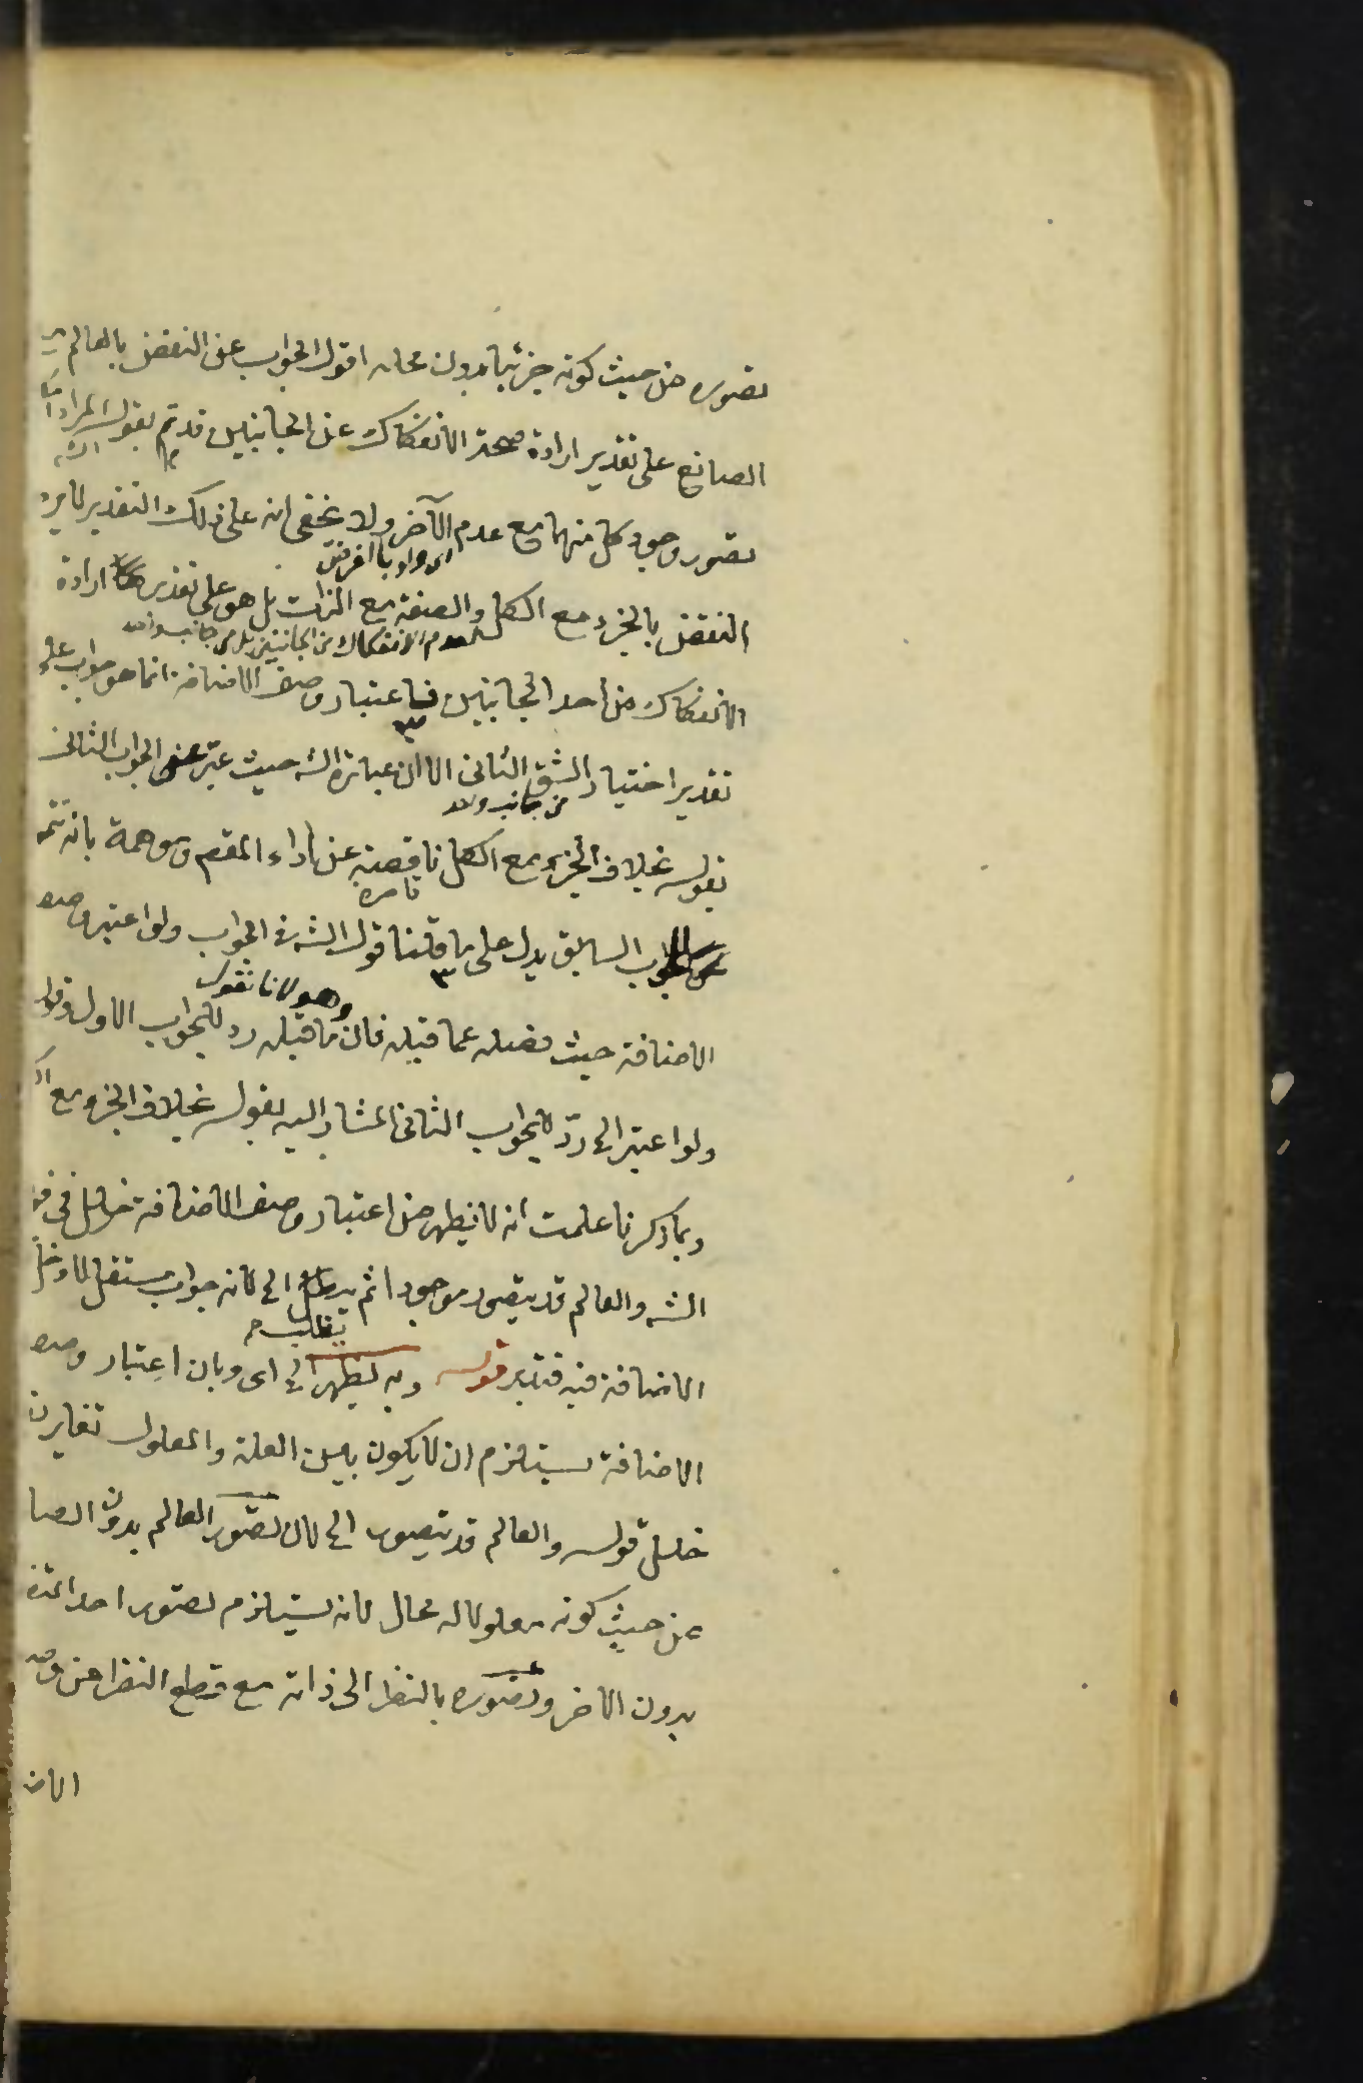 تصوره من حيث كونه جزئيا بدون محله اقول الجواب عن النقض بالعالم
الصانع على تقدير ارادة صحة الانفكاك عن الجانبين قد تم بقوله المراد
تصور وجود كل منهما مع عدم الآخر ولا يخفى انه على ذلك التقدير لا يرد
النقض بالجزء مع الكل والصفة مع الذات بل هو على تقدير ارادة
لعدم الانفكاك من الجانبين بل من جانب واحد
الانفكاك من احد الجانبين فباعتبار وصف الاضافة انما هو جواب على
تقدير اختيار الشق الثانى الا ان عبارة الشه حيث عبر عن الجواب الثانى
من جانب واحد
بقوله بخلاف الجزء مع الكل ناقصة عن اداء المقصم وموهمة بانه تتمة
قاصرة
الجواب السابق يدل على ما قلنا قول الشه فى الجواب ولو اعتبر وصف
وهو لانا نقول
الاضافة حيث فصله عما قبله فان ما قبله رد للجواب الاول وقوله
ولو اعتبر الخ ردّ للجواب الثانى المشار اليه بقوله بخلاف الجزء مع
وبما ذكرنا علمت انه لا يظهر من اعتبار وصف الاضافة خلل فى
الشه والعالم قد يتصور موجودا ثم يطلب الخ لانه جواب مستقل لا دخل
يطلب
الاضافة فيه فتدبر قوله وبه يظهر الخ اى وبان اعتبار وصف
الاضافة يستلزم ان لا يكون بين العلة والمعلول تغاير
خلل قوله والعالم قد يتصور الخ لان تصور العالم بدون الصا
من حيث كونه معلولا له محال لانه يستلزم تصور احد المتضا
بدون الاخر وتصوره بالنظر الى ذاته مع قطع النظر عن وصف
الاضا